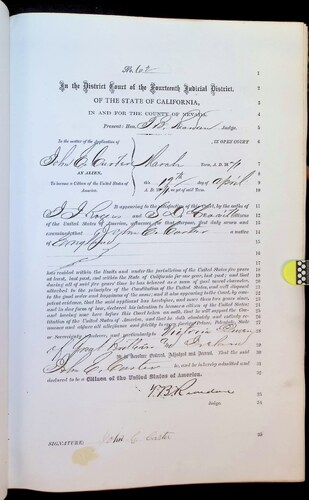 No. 62
In the District Court of the Fourteenth Judicial District,
OF THE STATE OF CALIFORNIA,
IN AND FOR THE COUNTY OF NEVADA.
Present: Hon. T B Reardon Judge.
In the matter of the Application of
IN OPEN COURT
John C Carter
AN ALIEN,
March Term, A. D. 187
To become a Citizen of the United States of
America.
this 19th day of April
A. D.
It appearing to the satisfaction of this Court, by the oaths of
and
citizens of the United States of America, witnesses for that purpose, first duly sworn and
examined that John C Carter a native
of England
has resided within the limits and under the jurisdiction of the United States five years
at least, last past, and within the State of California for one year, last past; and that
during all of said five years' time he has behaved as a man of good moral character,
attached to the principles of the Constitution of the United States, and well disposed
to the good order and happiness of the same; and it also appearing to the Court, by com-
petent evidence, that the said applicant has heretofore, and more than two years since,
and in due form of law, declared his intention to become a citizen of the United States;
and having now here before this Court taken an oath, that he will support the Con-
stitution of the United States of America, and that he doth absolutely and entirely re-
nounce and abjure all allegiance and fidelity to every foreign Prince, Potentate, State
or Sovereignty whatever, and particularly to Victoria Queen
of Great Britain &
It is therefore Ordered, Adjudged and Decreed, That the said
John C. Carter be, and he is hereby admitted and
declared to be a Citizen of the United States of America.
T. B. Reardon
Judge.
SIGNATURE: John C. Carter